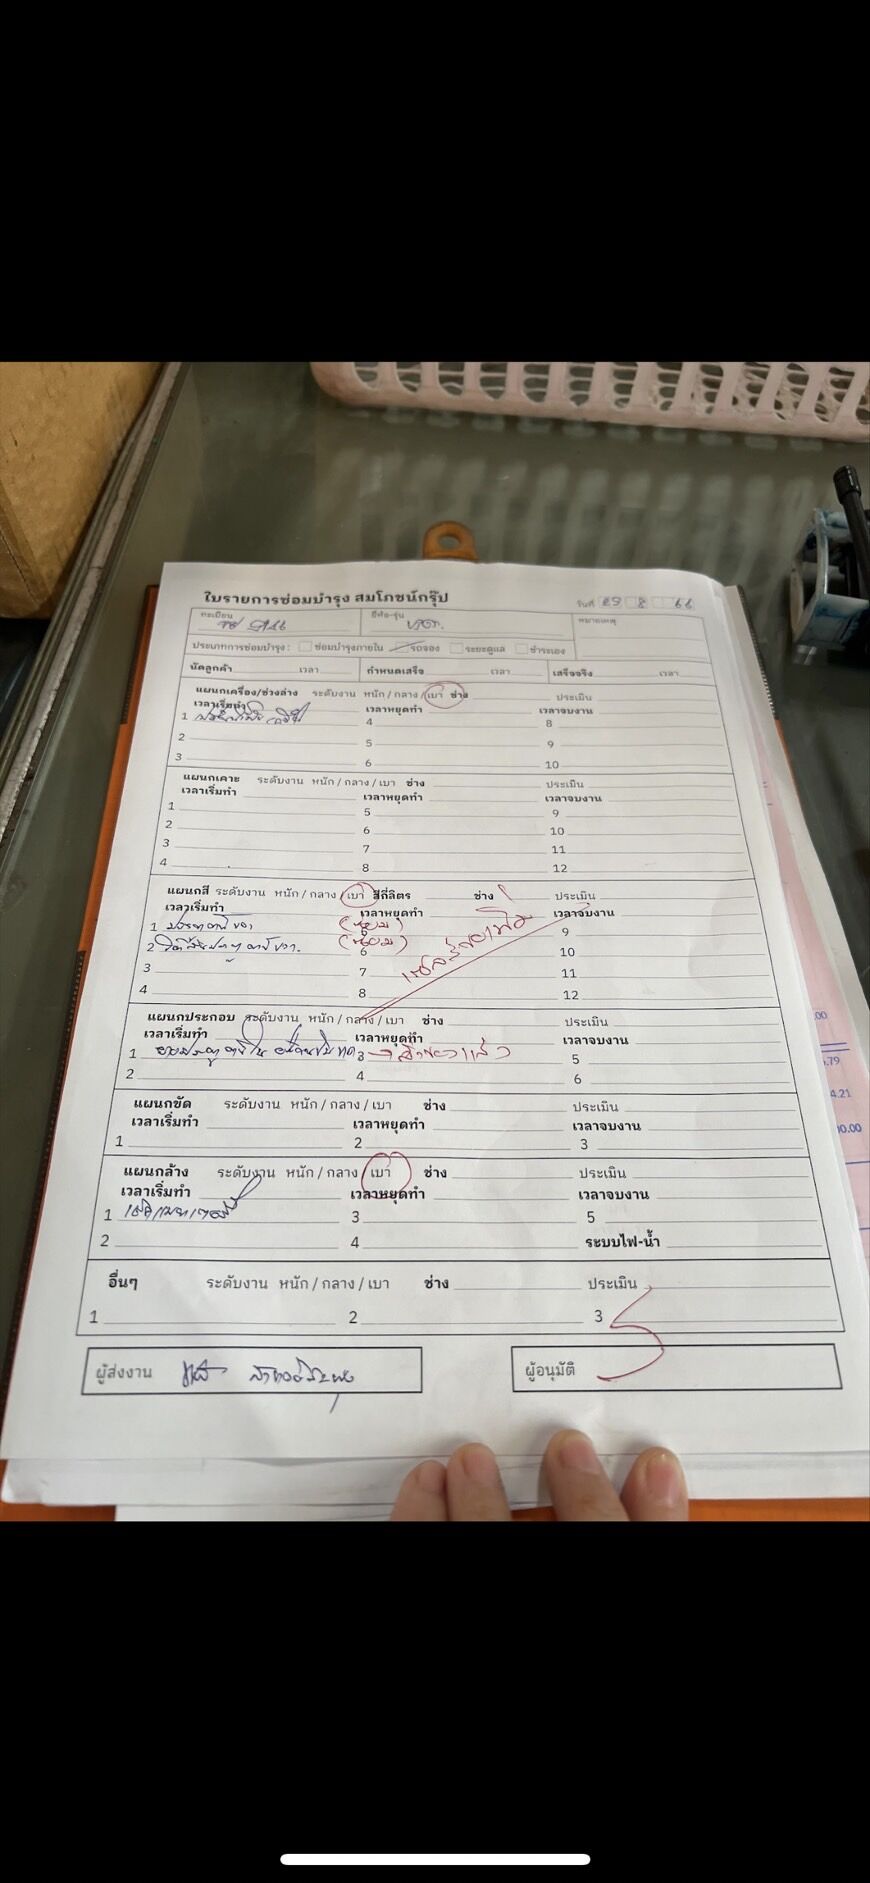 ใบรายการซ่อมบำรุง สมโภชน์กรุ๊ป
วันที่ 29 8 66
ทะเบียน ยี่ห้อ-รุ่น หมายเหตุ
ประเภทการซ่อมบำรุง : ซ่อมบำรุงภายใน รถจอง ระยะดูแล ชำระเอง
นัดลูกค้า เวลา กำหนดเสร็จ เวลา เสร็จจริง เวลา
แผนกเครื่อง/ช่วงล่าง ระดับงาน หนัก / กลาง / เบา ช่าง ประเมิน
เวลาเริ่มทำ เวลาหยุดทำ เวลาจบงาน
1 4 8
2 5 9
3 6 10
แผนกเคาะ ระดับงาน หนัก / กลาง / เบา ช่าง ประเมิน
เวลาเริ่มทำ เวลาหยุดทำ เวลาจบงาน
1 5 9
2 6 10
3 7 11
4 8 12
แผนกสี ระดับงาน หนัก / กลาง / เบา สีกี่ลิตร ช่าง ประเมิน
เวลาเริ่มทำ เวลาหยุดทำ เวลาจบงาน
1 (ซ่อม) 9
2 (ซ่อม) 6 10
3 7 11
4 8 12
แผนกประกอบ ระดับงาน หนัก / กลาง / เบา ช่าง ประเมิน
เวลาเริ่มทำ เวลาหยุดทำ เวลาจบงาน
1 3 5
2 4 6
แผนกขัด ระดับงาน หนัก / กลาง / เบา ช่าง ประเมิน
เวลาเริ่มทำ เวลาหยุดทำ เวลาจบงาน
1 2 3
แผนกล้าง ระดับงาน หนัก / กลาง / เบา ช่าง ประเมิน
เวลาเริ่มทำ เวลาหยุดทำ เวลาจบงาน
1 3 5
2 4 ระบบไฟ-น้ำ
อื่นๆ ระดับงาน หนัก / กลาง / เบา ช่าง ประเมิน
1 2 3
ผู้ส่งงาน ผู้อนุมัติ
.00
.79
4.21
00.00